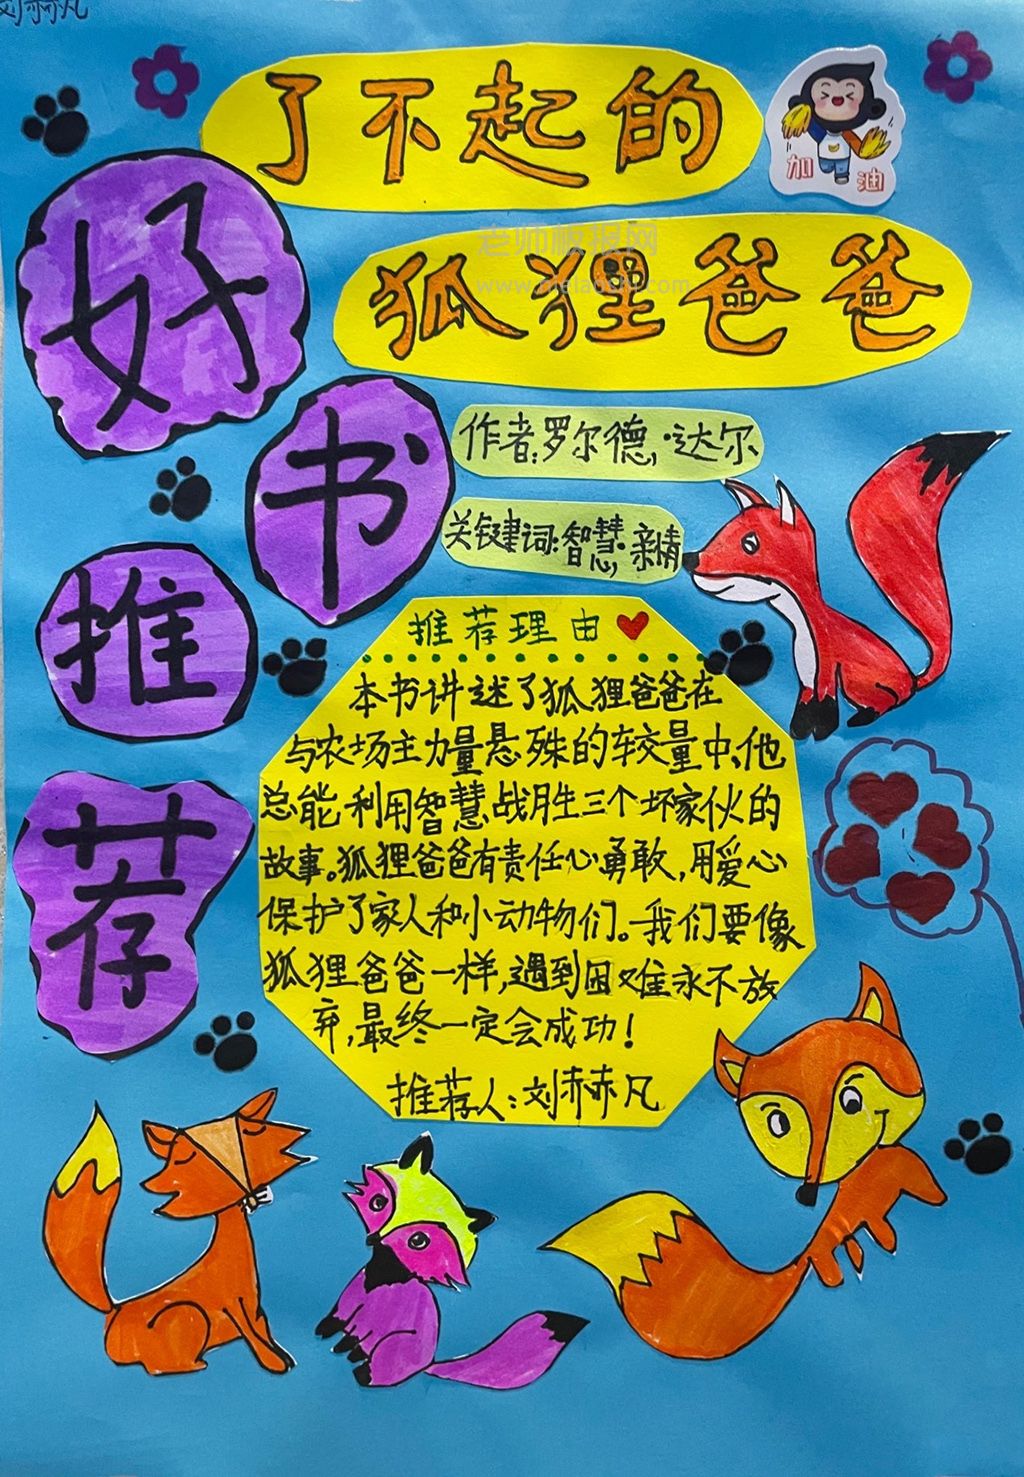 刘赫凡
了不起的
狐狸爸爸
加油
老师板报网
好
书
推
荐
作者:罗尔德·达尔
关键词:智慧·亲情
推荐理由
本书讲述了狐狸爸爸在
与农场主力量悬殊的较量中,他
总能利用智慧战胜三个坏家伙的
故事。狐狸爸爸有责任心勇敢,用爱心
保护了家人和小动物们。我们要像
狐狸爸爸一样,遇到困难永不放
弃,最终一定会成功!
推荐人:刘赫凡